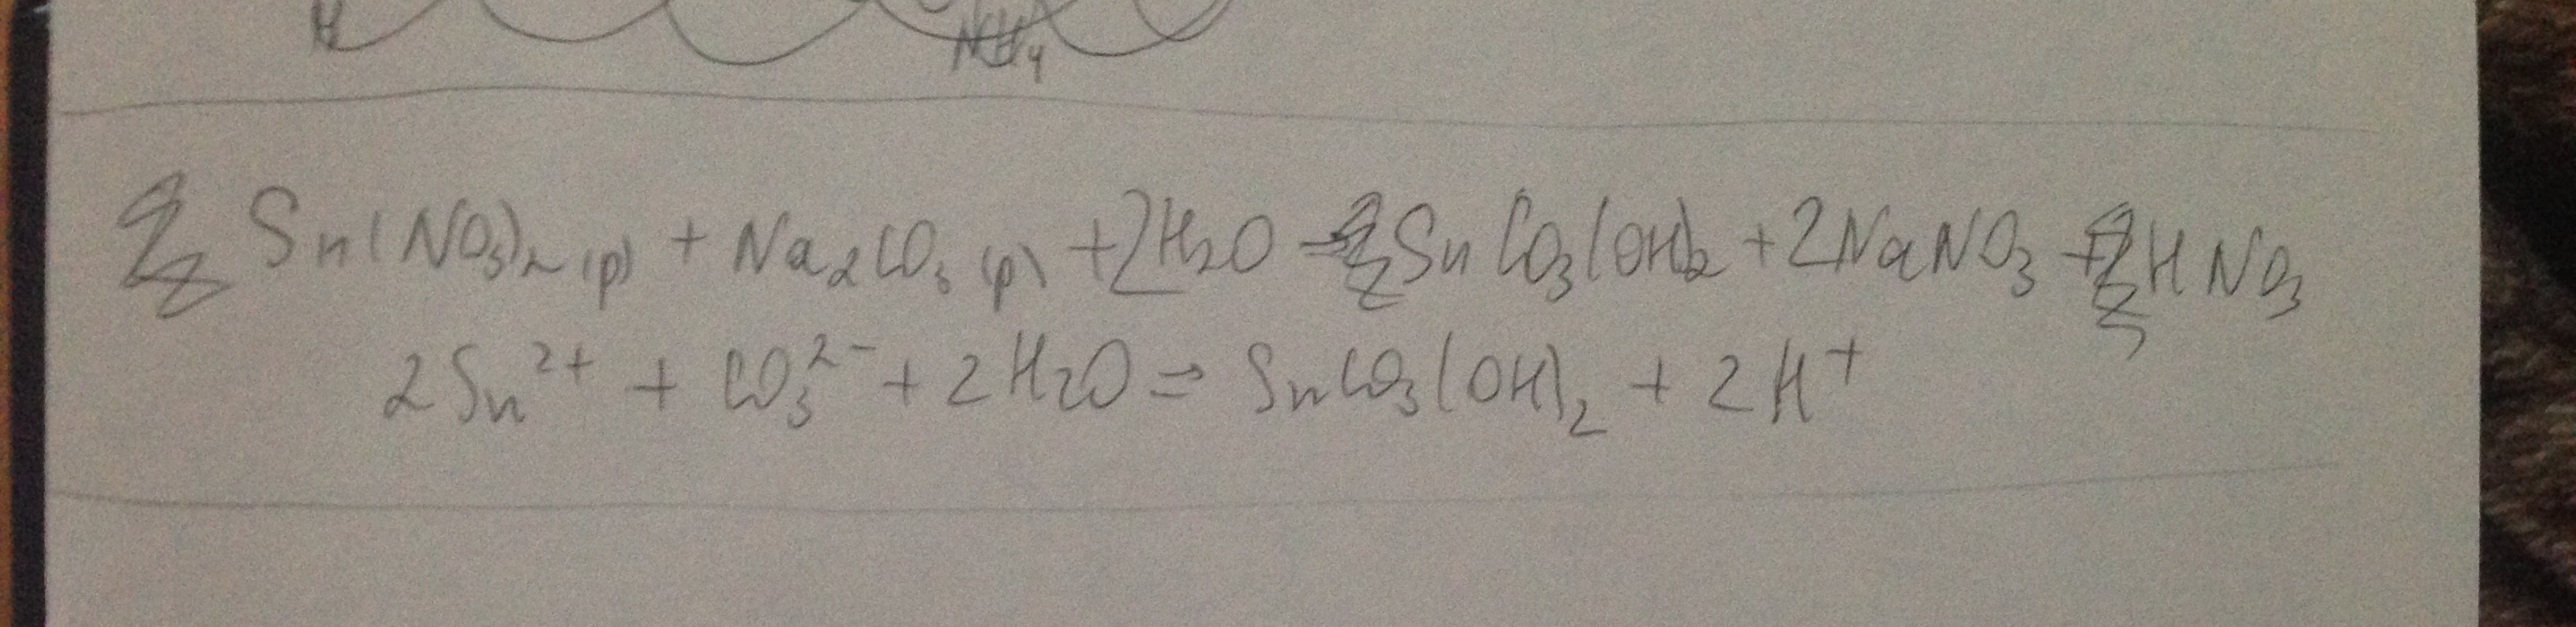 H NH₄
2 Sn(NO₃)₂ (р) + Na₂CO₃ (р) + 2H₂O → 2SnCO₃(OH)₂ + 2NaNO₃ + 2HNO₃
2Sn²⁺ + CO₃²⁻ + 2H₂O ⇒ SnCO₃(OH)₂ + 2H⁺